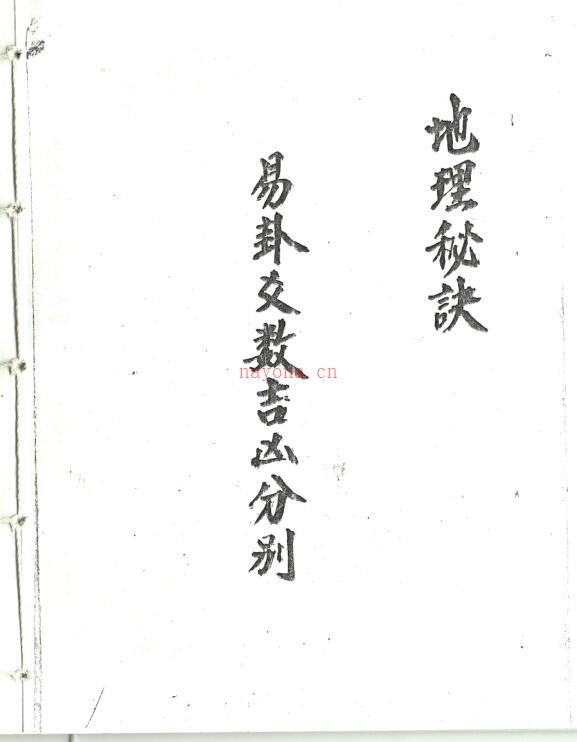 地理秘訣
易卦爻数吉凶分别
nayona.cn